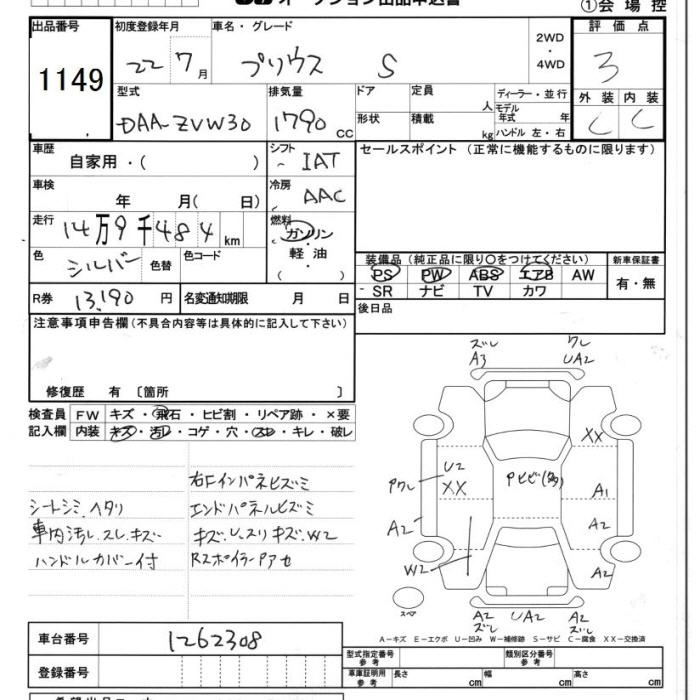 オークション出品申込書
①会場控
出品番号
1149
初度登録年月
22 7月
車名・グレード
プリウス S
2WD
・
4WD
評価点
3
外装 内装
C C
型式
DAA-ZVW30
排気量
1790 CC
ドア
形状
定員
人
積載
kg
ディーラー・並行
モデル
年式 年
ハンドル 左・右
車歴
自家用・( )
シフト
IAT
セールスポイント (正常に機能するものに限ります)
車検
年 月( 日)
冷房
AAC
走行
14万9千484km
燃料
ガソリン
・
軽油
・
( )
色
シルバー
色替
色コード
装備品 (純正品に限り○をつけてください)
PS PW ABS エアB AW
SR ナビ TV カワ
新車保証書
有・無
R券
13,190 円
名変通知期限 月 日
後日品
注意事項申告欄(不具合内容等は具体的に記入して下さい)
修復歴 有 〔箇所 〕
検査員
記入欄
FW キズ・飛石・ヒビ割・リペア跡・×要
内装 キズ・汚レ・コゲ・穴・スレ・キレ・破レ
シートシミ、ヘタリ
車内汚レ、スレ、キズ
ハンドルカバー付
右Fインパネヒズミ
エンドパネルヒズミ
キズ、U、スリキズ、W2
Rスポイラー
ズレ
A3
ワレ
UA2
XX
U2
XX
Pワレ
Pヒビ(多)
A1
A2
A2
W2
A2
スペア
A2
ズレ
UA2
A2
ズレ
A-キズ E-エクボ U-凹み W-補修跡 S-サビ C-腐食 XX-交換済
車台番号
1262308
登録番号
型式指定番号
参考
類別区分番号
参考
車庫証明用
参考
長さ cm
幅 cm
高さ cm